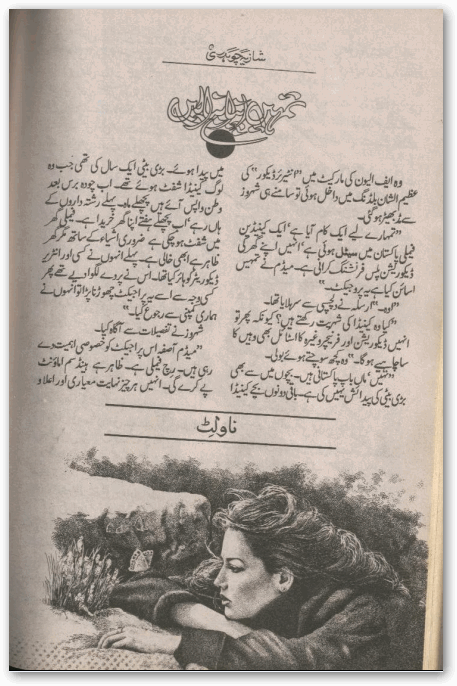 شازیہ چوہدری
وہ ایف الیون کی مارکیٹ میں "انٹیریر ڈیکور" کی
عظیم الشان بلڈنگ میں داخل ہوئی تو سامنے ہی شہروز
سے مڈبھیڑ ہوگئی۔
"تمہارے لیے ایک کام آیا ہے' ایک کینیڈین
فیملی پاکستان میں سیٹل ہوئی ہے' انہیں اپنے گھر کی
ڈیکوریشن پلس فرنشنگ کرانی ہے۔ میڈم نے تمہیں
اسائن کیا ہے یہ پروجیکٹ۔"
"اوہ۔" ارسلہ نے دلچسپی سے سر ہلایا تھا۔
"کیا وہ کینیڈا کی شہریت رکھتے ہیں؟ کیونکہ پھر تو
انہیں ڈیکوریشن اور فرنیچر وغیرہ کا اسٹائل بھی وہیں کا
سا چاہیے ہوگا۔" وہ کچھ سوچتے ہوئے بولی۔
"نہیں' ماں باپ پاکستانی ہیں۔ بچوں میں سے بھی
بڑی بیٹی کی پیدائش یہیں کی ہے۔ باقی دونوں بچے کینیڈا
میں پیدا ہوئے۔ بڑی بیٹی ایک سال کی تھی جب وہ
لوگ کینیڈا شفٹ ہوئے تھے۔ اب چودہ برس بعد
وطن واپس آئے ہیں پچھلے ماہ۔ پہلے رشتہ داروں کے
ہاں رہے' اب پچھلے ہفتے اپنا گھر خریدا ہے۔ فیملی گھر
میں شفٹ ہوچکی ہے ضروری اشیاء کے ساتھ مگر گھر
ظاہر ہے ابھی خالی ہے۔ پہلے انہوں نے کسی اور انٹیریر
ڈیکوریٹر کو ہائر کیا تھا۔ اس نے پردے لگوا دیے تھے پھر
کسی وجہ سے اسے یہ پراجیکٹ چھوڑنا پڑا تو انہوں نے
ہماری کمپنی سے رجوع کیا۔"
شہروز نے تفصیلات سے آگاہ کیا۔
"میڈم آصفہ اس پراجیکٹ کو خصوصی اہمیت دے
رہی ہیں۔ رچ فیملی ہے۔ ظاہر ہے ہینڈسم اماؤنٹ
پے کرے گی۔ انہیں ہر چیز نہایت معیاری اور اعلا و
ناولٹ